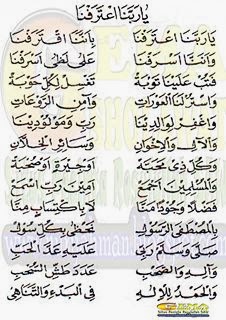 يارَبَّنَا اعْتَرَفْنَا
يَارَبَّنَا اعْتَرَفْنَا بِأَنَّنَا اقْتَرَفْنَا
وَأَنَّنَا أَسْرَفْنَا عَلَى لَظَى أَشْرَفْنَا
فَتُبْ عَلَيْنَا تَوْبَةً تَغْسِلْ لِكُلِّ حَوْبَةْ
وَاسْتُرْ لَنَا الْعَوْرَاتِ وَآمِنِ الرَّوْعَاتِ
وَاغْفِرْ لِوَالِدِيْنَا رَبِّ وَمَوْلُودِيْنَا
وَالْآلِ وَالْإِخْوَانِ وَسَائِرِ الْخِلَّانِ
وَكُلِّ ذِي مَحَبَّةْ أَوْ جِيْرَةٍ أَوْ صُحْبَةْ
وَالْمُسْلِمِيْنَ أَجْمَعْ آمِيْنَ رَبِّ اسْمَعْ
فَضْلًا وَجُوْدًا مَنَّا لَا بِاكْتِسَابٍ مِنَّا
بِالْمُصْطَفَى الرَّسُوْلِ نَحْظَى بِكُلِّ سُوْلِ
صَلَّى وَسَلَّمْ رَبِّي عَلَيْهِ عَدَّ الْحَبِّ
وَآلِهِ وَالصَّحْبِ عَدَدَ طَشِّ السُّحْبِ
وَالْحَمْدُ لِلْإِلٰهِ فِي الْبَدْءِ وَالتَّنَاهِي